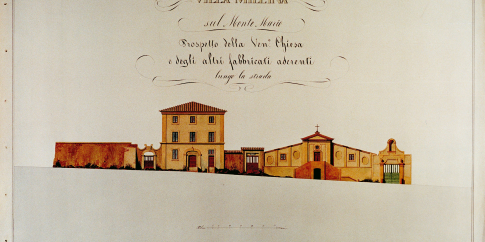 sul Monte Mario
Prospetto della Ven.e Chiesa
e degli altri fabbricati aderenti
lungo la strada